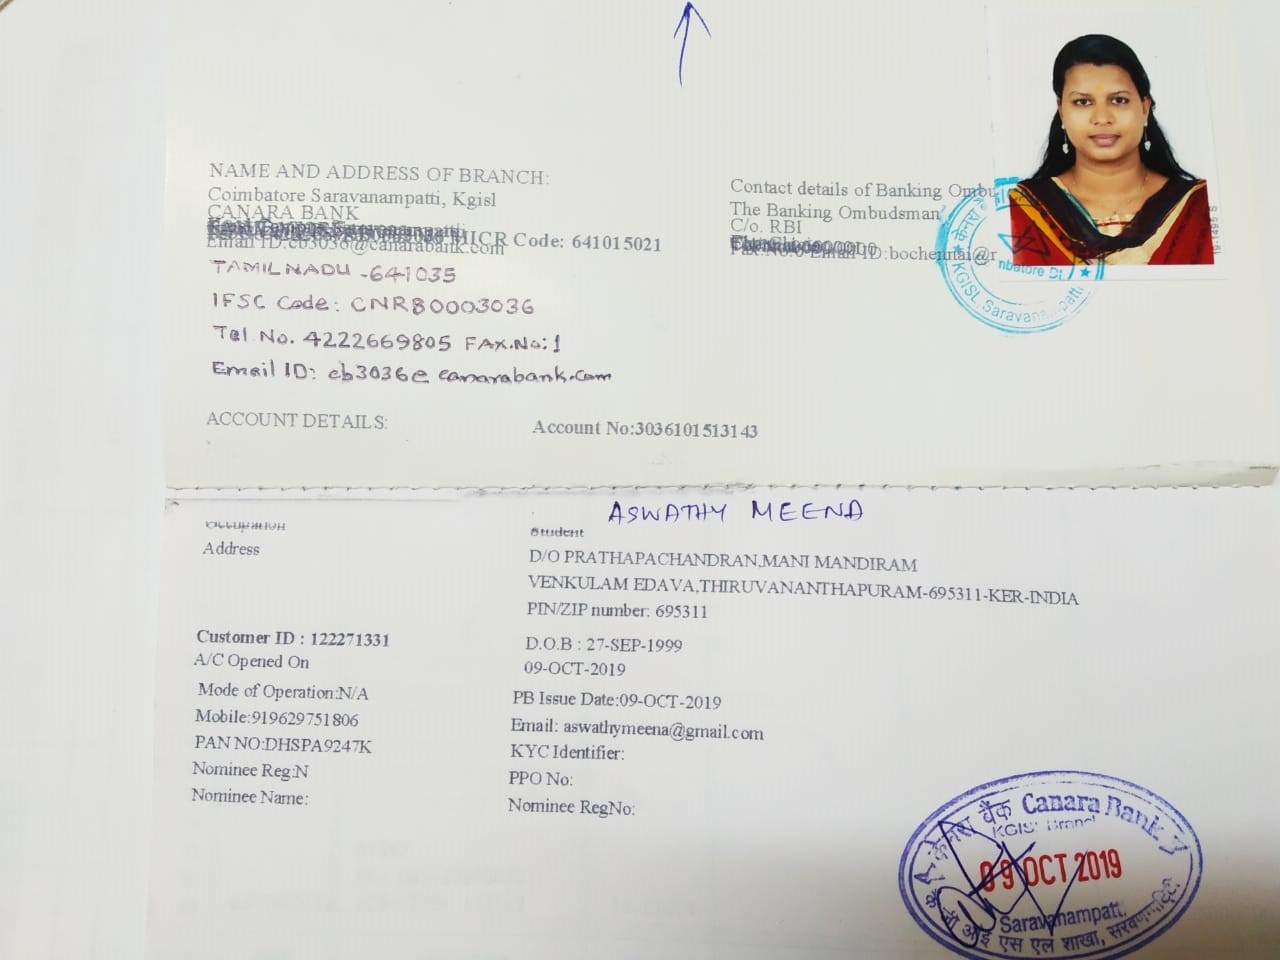 NAME AND ADDRESS OF BRANCH:
Coimbatore Saravanampatti, Kgisl
CANARA BANK
MICR Code: 641015021
Email ID:cb3036@canarabank.com
TAMILNADU -641035
IFSC Code: CNRB0003036
Tel No. 4222669805 FAX.No:1
Email ID: cb3036@canarabank.com
Contact details of Banking Ombu
The Banking Ombudsman
C/o. RBI
Fax No:0 Email ID:bochennai@r
KGISL, Saravanampatti
ACCOUNT DETAILS:
Account No:3036101513143
ASWATHY MEENA
Occupation
Student
Address
D/O PRATHAPACHANDRAN,MANI MANDIRAM
VENKULAM EDAVA,THIRUVANANTHAPURAM-695311-KER-INDIA
PIN/ZIP number: 695311
Customer ID : 122271331
D.O.B : 27-SEP-1999
A/C Opened On
09-OCT-2019
Mode of Operation:N/A
PB Issue Date:09-OCT-2019
Mobile:919629751806
Email: aswathymeena@gmail.com
PAN NO:DHSPA9247K
KYC Identifier:
Nominee Reg:N
PPO No:
Nominee Name:
Nominee RegNo:
केनरा बैंक Canara Bank
KGISL Branch
09 OCT 2019
Saravanampatti
के जी आई एस एल शाखा, सरवणम्पट्टि